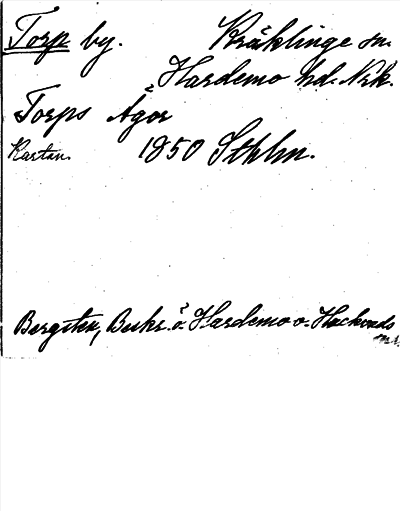 Torp by. Kräklinge sn.
Hardemo hd. Nrk.
Torps Ågor
Kartan. 1850 Sthlm.
Bergsten, Beskr. ö. Hardemo o. Hackvads